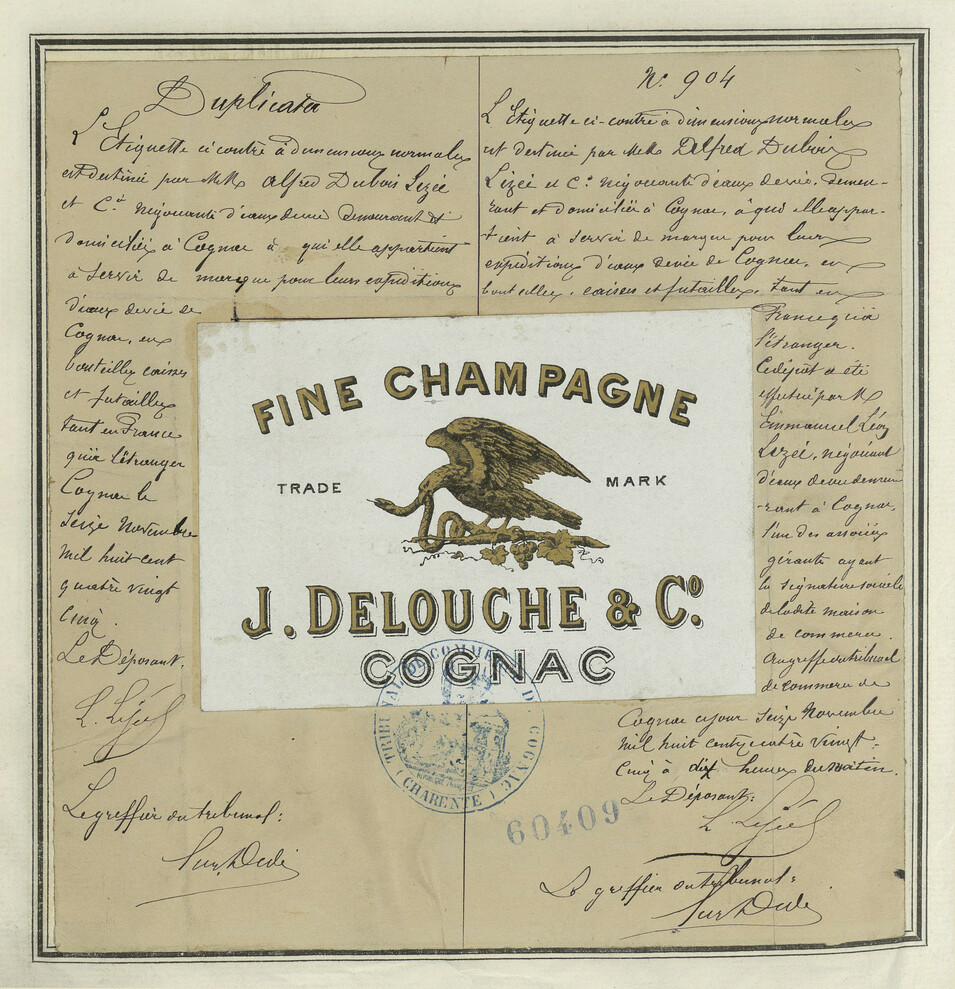 Duplicata
L'Etiquette ci contre à dimensions normales
est destinée par MM. Alfred Dubois Lizée
et Cie Négociants d'eaux devie Demeurant et
domiciliés à Cognac à qui elle appartient
à servir de marque pour leurs expeditions
d'eaux devie de
Cognac, en
bouteilles caisses
et futailles
tant en France
qu'à l'étranger
Cognac le
Seize Novembre
mil huit cent
quatre vingt
cinq.
Le Déposant.
Le greffier du tribunal:
N° 904
L'Etiquette ci-contre à dimensions normales
est destinée par MM. Alfred Dubois
Lizée et Cie Négociants d'eaux devie, demeu-
rant et domiciliés à Cognac, à qui elle appar-
tient à servir de marque pour leurs
expéditions d'eaux devie de Cognac, en
bouteilles, caisses et futailles, tant en
France qu'à
l'étranger.
Ce dépôt a été
effectué par M.
Emmanuel Léon
Lizée, négociant
d'eaux devie demeu-
-rant à Cognac,
l'un des associés
gérants ayant
la signature sociale
de ladite maison
de commerce.
Au greffe du tribunal
de commerce de
Cognac ce jour Seize Novembre
mil huit cent quatre vingt
cinq à dix heures du matin.
Le Déposant:
Le greffier du tribunal:
FINE CHAMPAGNE
TRADE MARK
J. DELOUCHE & Co.
COGNAC
TRIBUNAL DE COMMERCE DE COGNAC
(CHARENTE)
60409